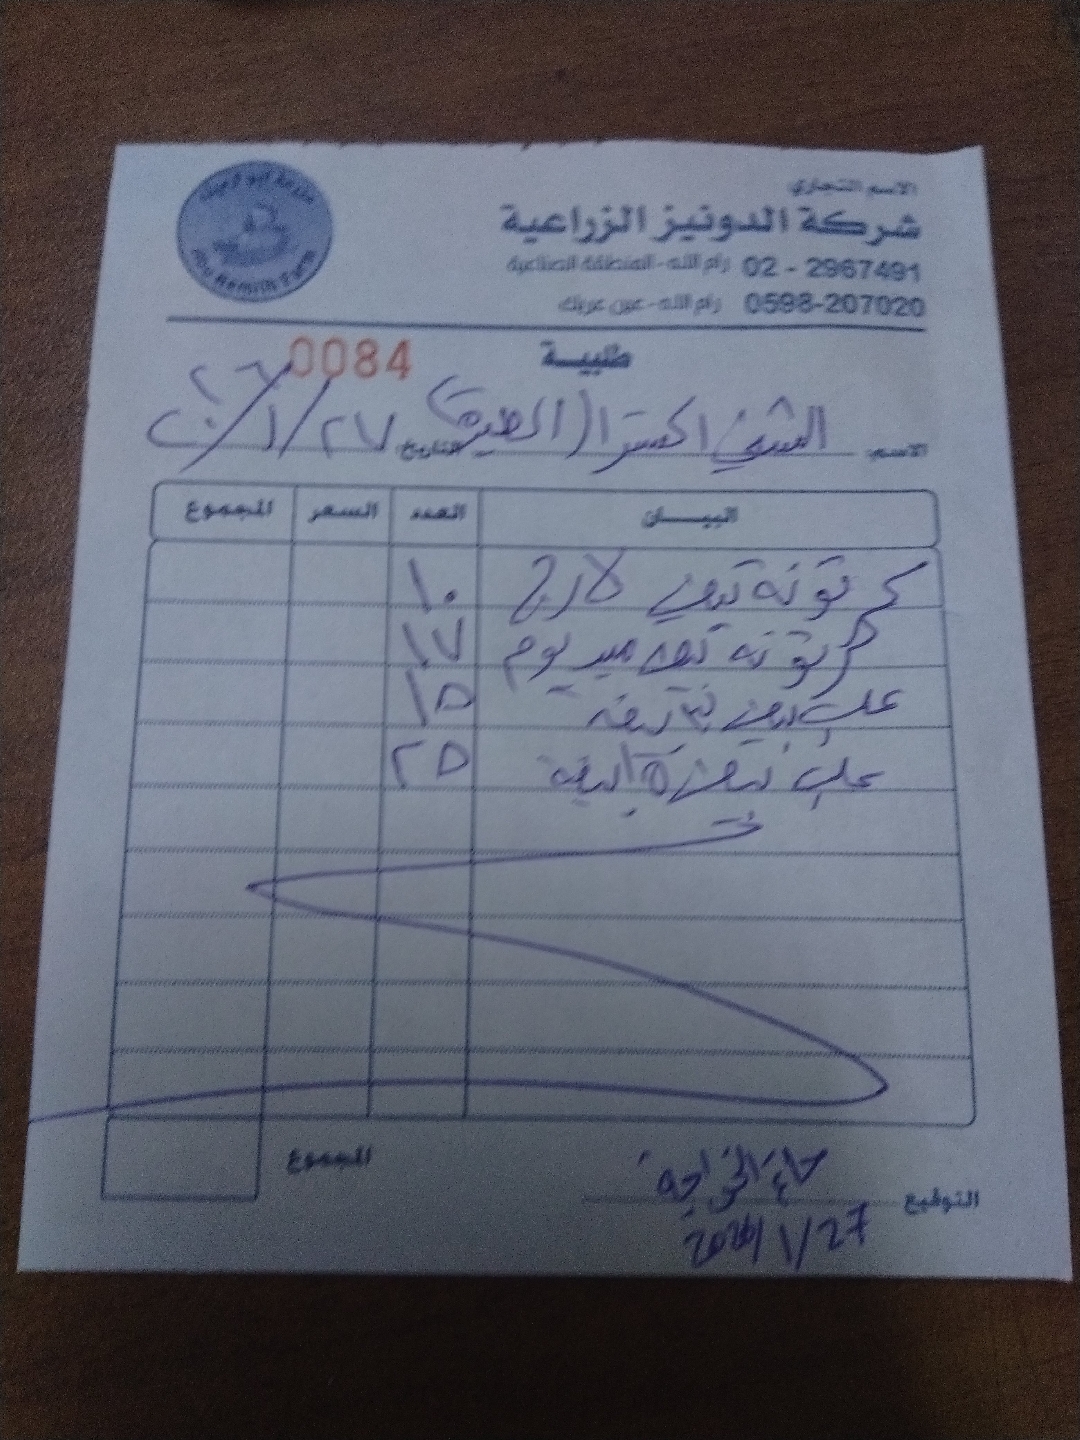 الاسم التجاري
شركة الدونيز الزراعية
02 - 2967491 رام الله - المنطقة الصناعية
0598-207020 رام الله - عين عريك
Abu Remilh Farm
طلبية
0084
الاسم: الشني اكسترا (الطيرة) التاريخ ٢٧/١/٢٠٢٦
البيان العدد السعر المجموع
كرتونة بيض لارج ١٠
كرتونة بيض ميديوم ١٧
علب بيض ١٥
علب بيض ٢٥
المجموع
التوقيع
27/1/2026